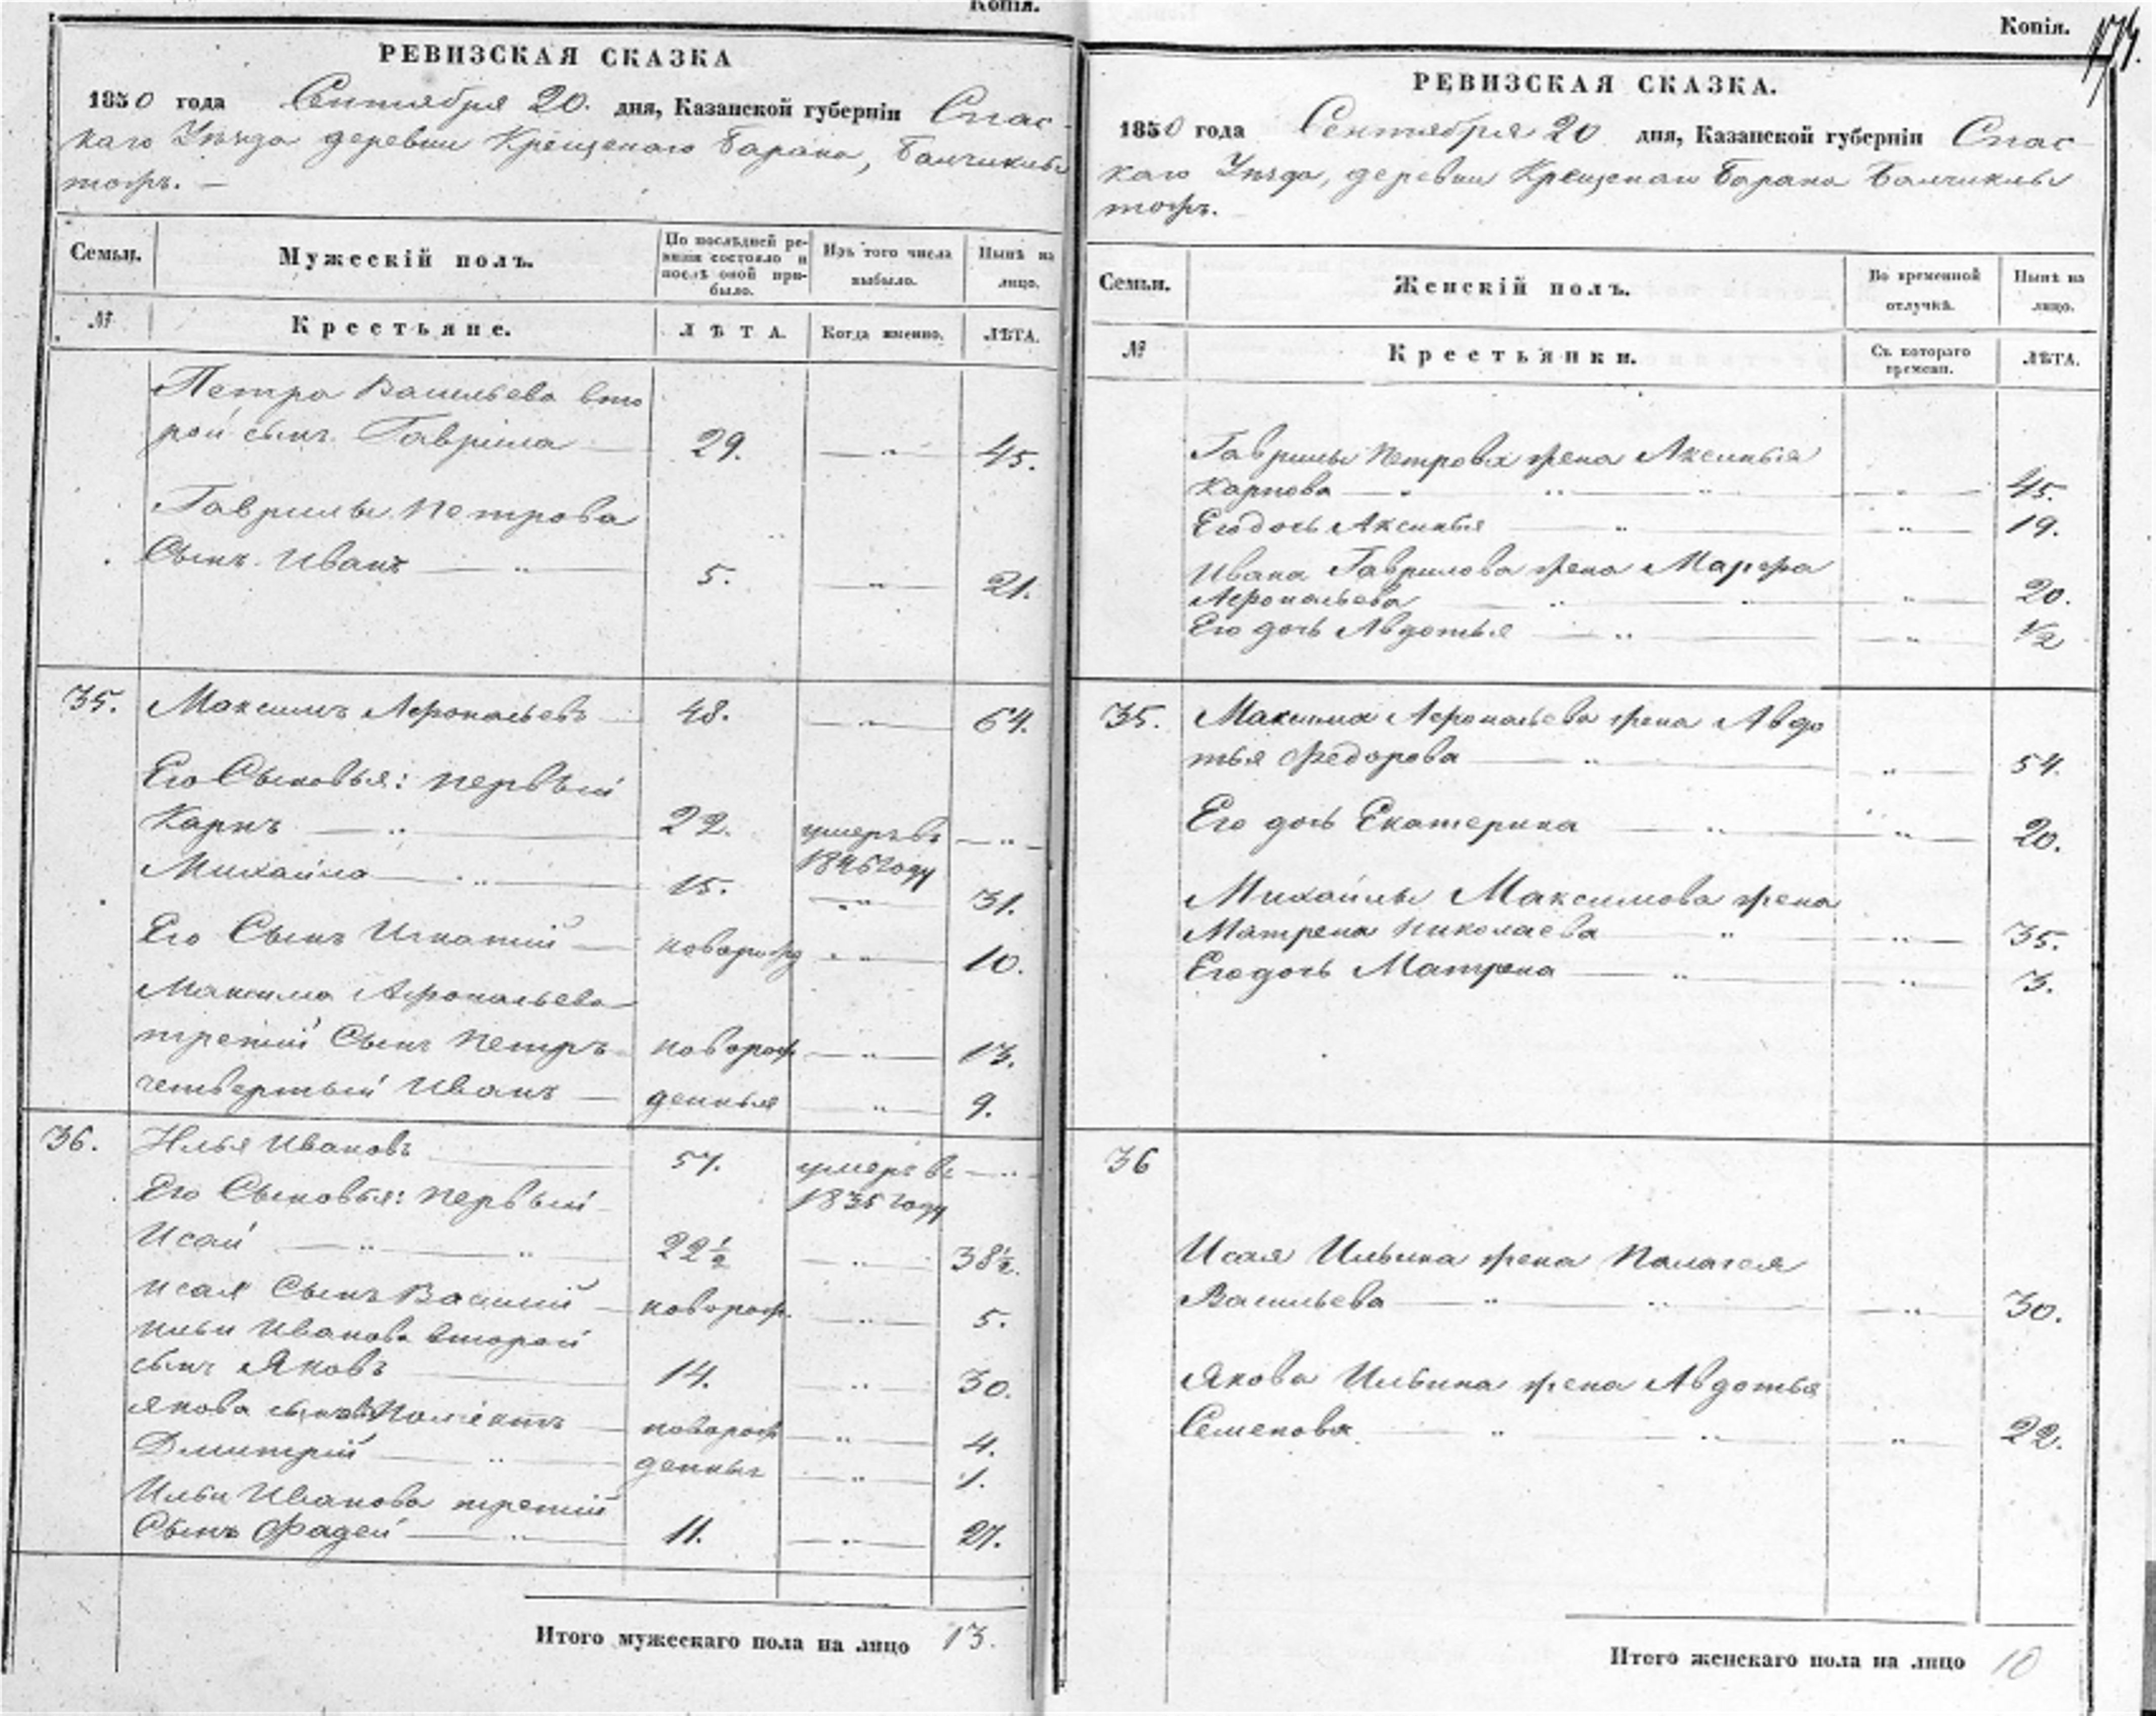 Копія.
РЕВИЗСКАЯ СКАЗКА
1850 года Сентября 20. дня, Казанской губерніи Спас-
каго Уѣзда деревни Крещенаго Барана, Балчиклы
тожъ. —
Семьи.
Мужескій полъ.
По послѣдней ре-
визіи состояло и
послѣ оной при-
было.
Изъ того числа
выбыло.
Нынѣ на
лицо.
№
Крестьяне.
ЛѢТА.
Когда именно.
ЛѢТА.
Петра Васильева вто
рой сынъ Гаврила — 29. — " — 45.
Гаврилы Петрова
Сынъ Иванъ — " — 5. — " — 21.
35. Максимъ Аѳонасьевъ — 48. — " — 64.
Его Сыновья: первый
Карпъ — " — 22. умеръ въ — " —
1845 году
Михайло — " — 15. — " — 31.
Его Сынъ Игнатій — новорожд — " — 10.
Максима Аѳонасьева
третій Сынъ Петръ — новорож — " — 13.
четвертый Иванъ — денныя — " — 9.
36. Илья Ивановъ — 57. умеръ въ — " —
1835 году
Его Сыновья: первый
Исай — " — " 22½ — " — 38½.
Исая Сынъ Василій — новорож. — " — 5.
Ильи Иванова второй
сынъ Яковъ — 14. — " — 30.
Якова сынъ — новорож — " — 4.
Дмитрій — " — денныя — " — 1.
Ильи Иванова третій
Сынъ Фадей — " — 11. — " — 27.
Итого мужескаго пола на лицо 13.
Копія.
174.
РЕВИЗСКАЯ СКАЗКА.
1850 года Сентября 20 дня, Казанской губерніи Спас-
каго Уѣзда, деревни Крещенаго Барана Балчиклы
тожъ.
Семьи.
Женскій полъ.
Во временной
отлучкѣ.
Нынѣ на
лицо.
№
Крестьянки.
Съ котораго
времени.
ЛѢТА.
Гаврилы Петрова жена Аксинья
Карпова — " — " — " — 45.
Его дочь Аксинья — " — " — 19.
Ивана Гаврилова жена Марфа
Аѳонасьева — " — " — " — 20.
Его дочь Авдотья — " — " — ½
35. Максима Аѳонасьева жена Авдо
тья Федорова — " — " — 54.
Его дочь Екатерина — " — " — 20.
Михайлы Максимова жена
Матрена Николаева — " — " — 35.
Его дочь Матрена — " — " — 3.
36
Исая Ильина жена Палагея
Васильева — " — " — " — 30.
Якова Ильина жена Авдотья
Семенова — " — " — " — 22.
Итого женскаго пола на лицо 10